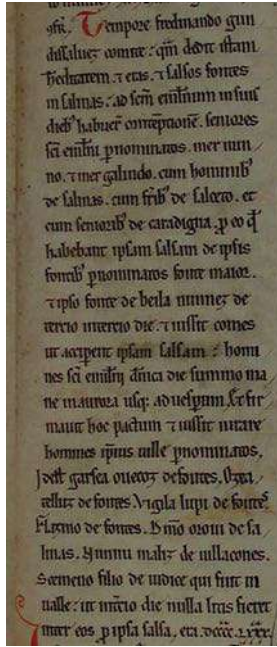 Tempore fredinando gun
dissaluez comite: qñ dedit istam
hereditatem. ⁊ eras. ⁊ salsos fontes
in salinas. ad scm emilianum in suis
dieb' habuer contemptione. seniores
sci emilni pnominatos. mer nun
no. ⁊ mer galindo. cum hominib'
de salinas. cum frib' de salceto. et
cum seniorib' de caradigna. p eo qd
habebant ipsam salsam de ipsis
fontib' pnominatos fonte maior.
⁊ ipso fonte de beila nunnez de
tercio in tercio die. ⁊ iussit comes
ut acciperent ipsam salsam: homi
nes sci emilni dñica die summo ma
ne in aurora usq: ad uesperum. Et fir
mauit hoc pactum ⁊ iussit iurare
homines ipsius uille pnominatos.
Idest garsea ouecoz de fontes.
telluz de fontes. Vigila lupi de fontes
de fontes. oroui de sa
linas. Nunnu de uillacones.
Scemeno filio de iudice qui fuit in
ualle: ut die nulla fieret
inter eos p ipsa salsa. era. dcccc.